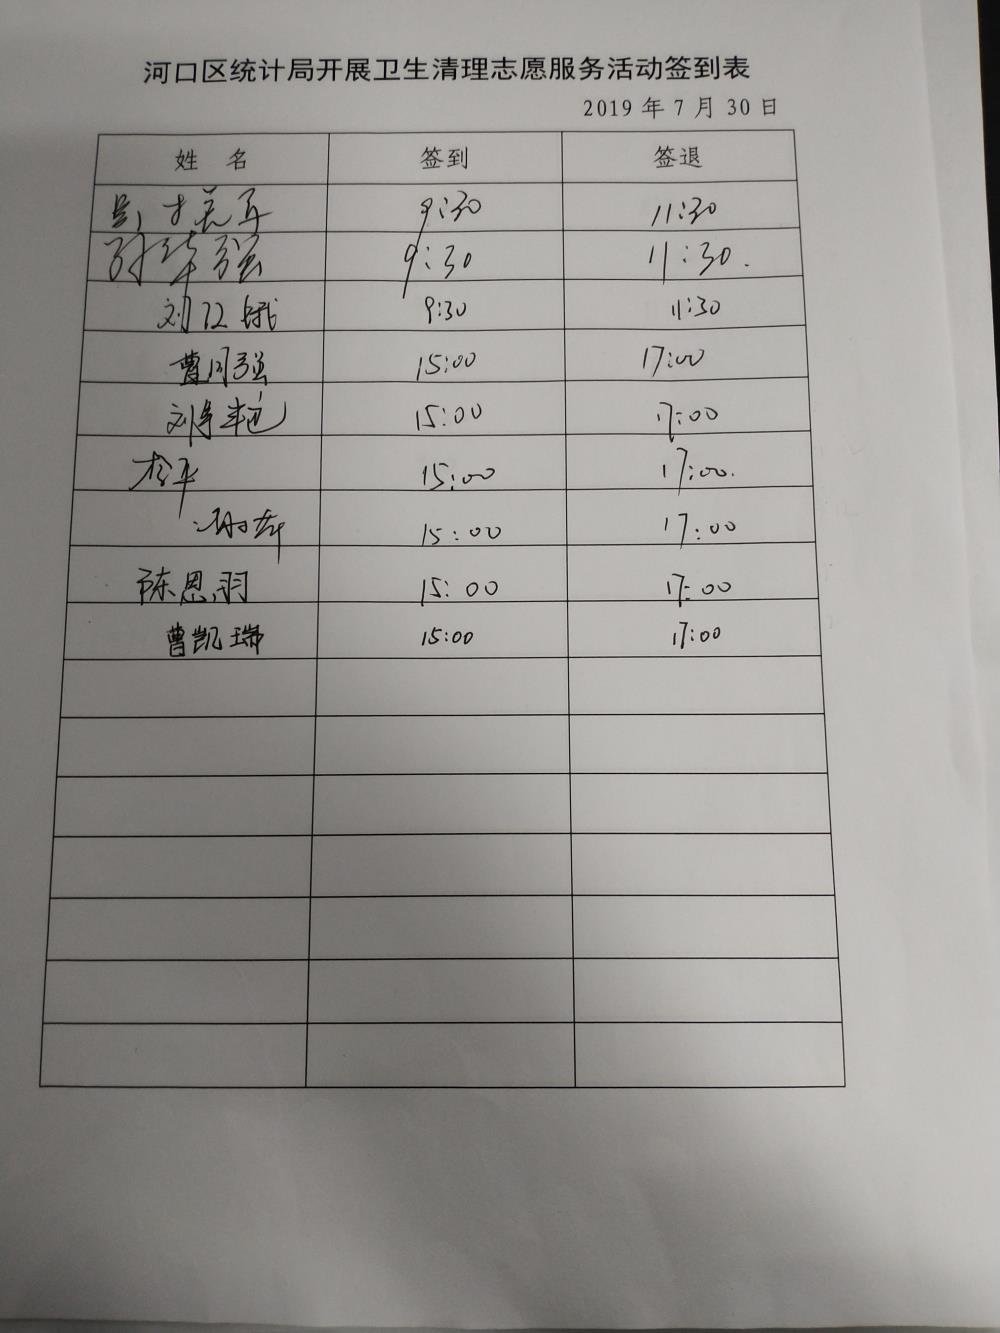 河口区统计局开展卫生清理志愿服务活动签到表
2019 年 7 月 30 日
姓 名 签到 签退
9:30 11:30
孙华强 9:30 11:30.
刘 9:30 11:30
曹同强 15:00 17:00
刘 15:00 17:00
15:00 17:00.
15:00 17:00
陈恩羽 15:00 17:00
曹凯瑞 15:00 17:00